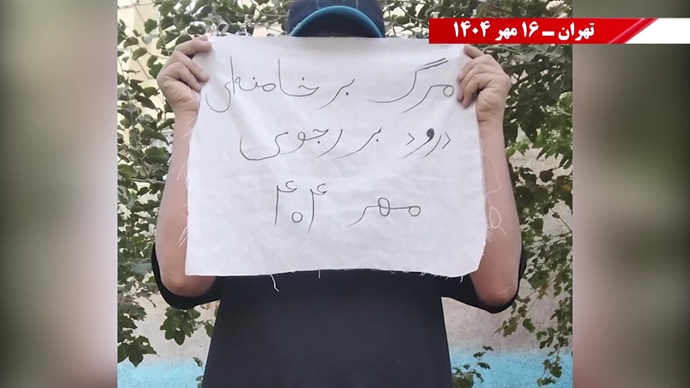 تهران ـ ۱۶ مهر ۱۴۰۴
مرگ بر خامنه‌ای
درود بر رجوی
مهر ۴۰۴